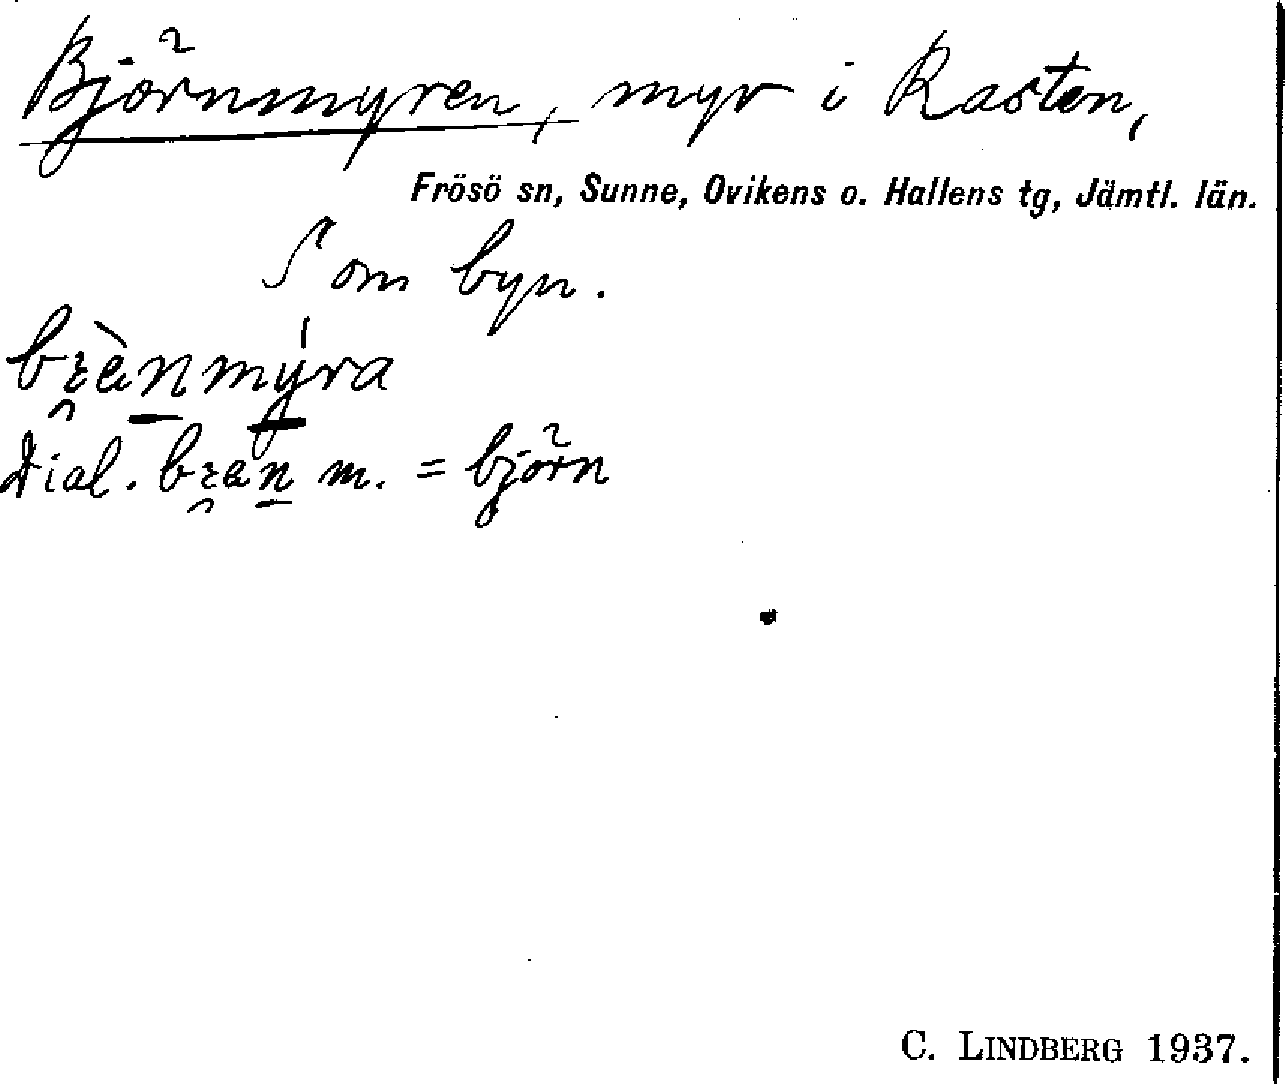 Björnmyren, myr i Kasten,
Frösö sn, Sunne, Ovikens o. Hallens tg, Jämtl. län.
S om byn.
Dial. m. = björn
C. LINDBERG 1937.